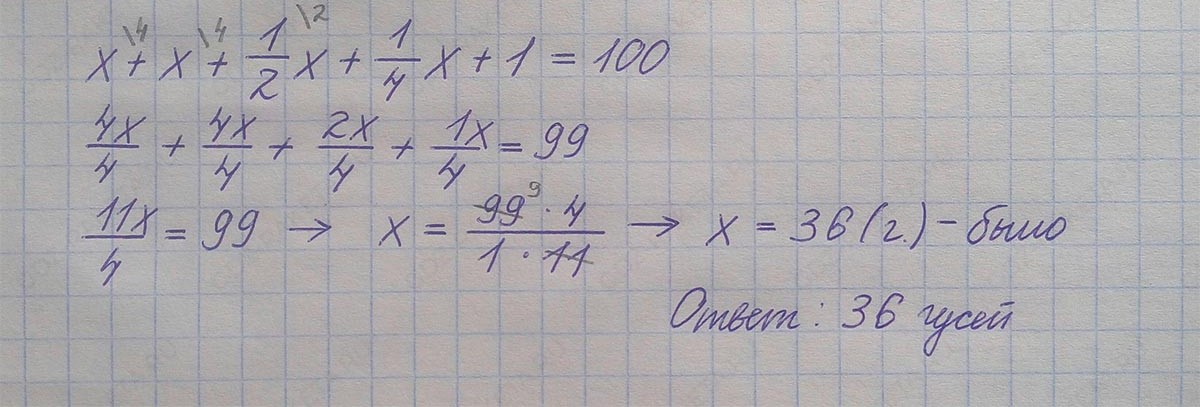 x\4 + x\4 + 1/2 x\2 + 1/4 x + 1 = 100
4x/4 + 4x/4 + 2x/4 + 1x/4 = 99
11x/4 = 99 → x = 99⁹ · 4 / 1 · 11 → x = 36 (г.) - было
Ответ: 36 гусей